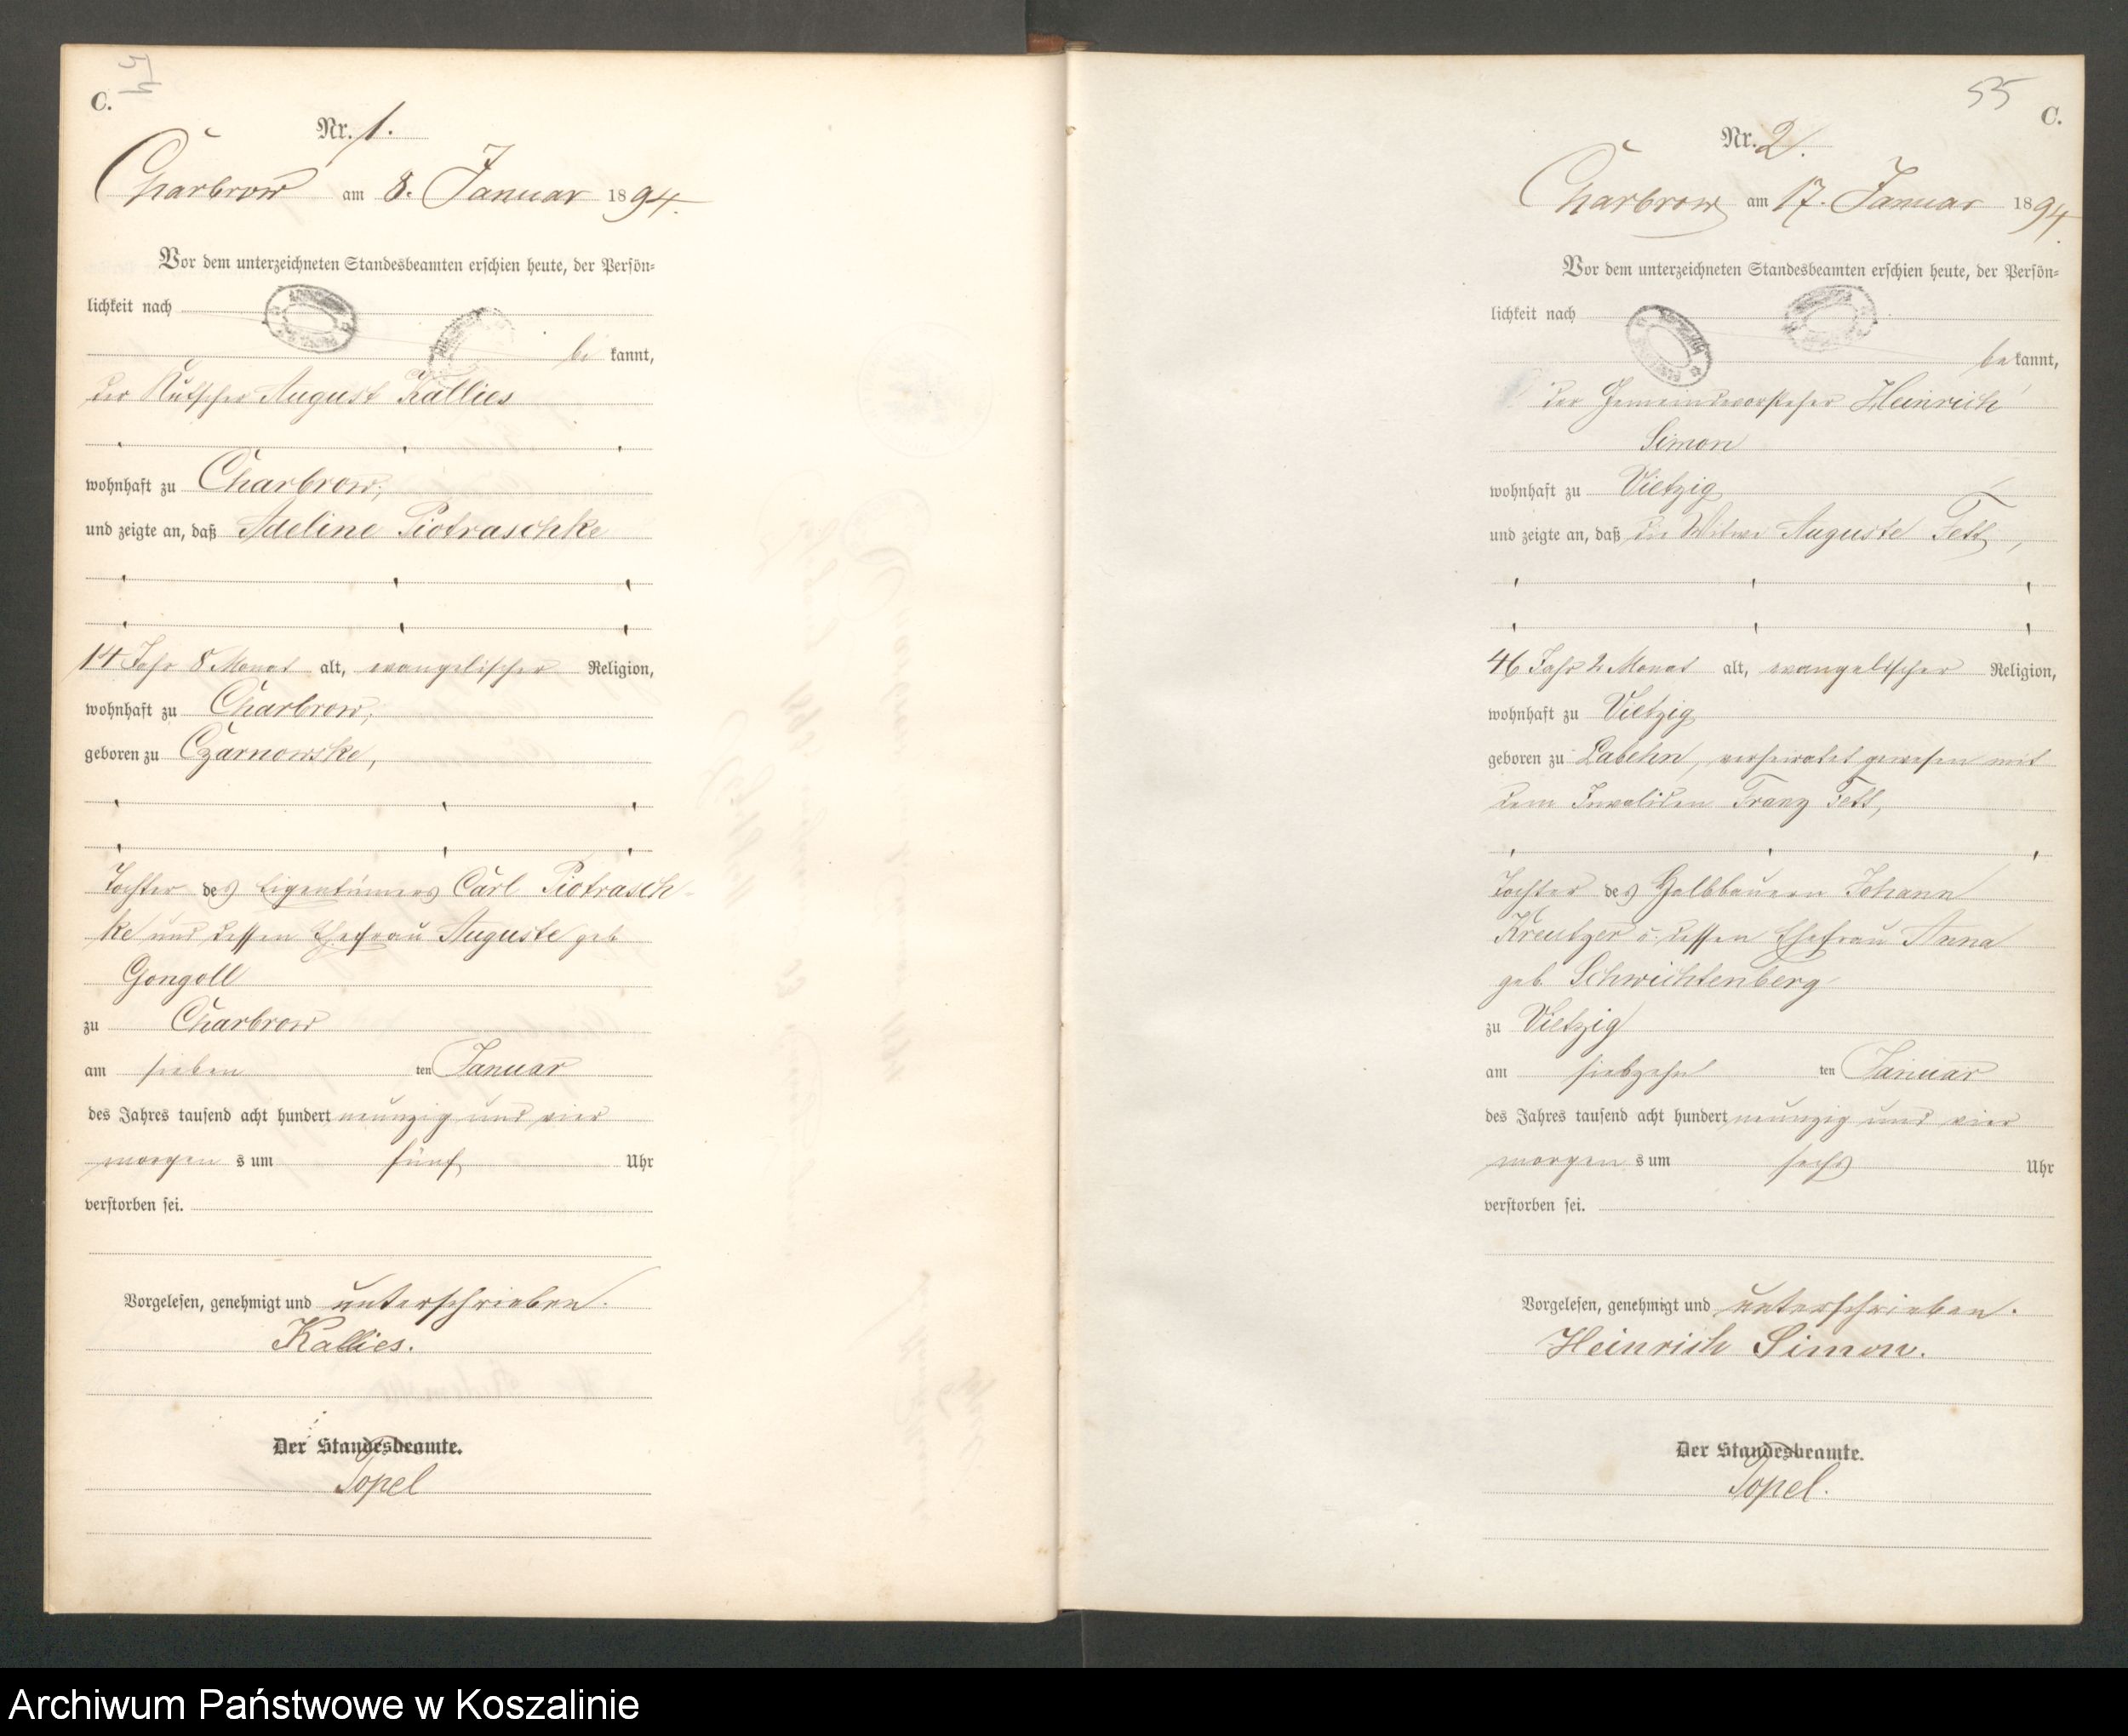 C.
Nr. 1.
Charbrow am 8. Januar 1894.
Vor dem unterzeichneten Standesbeamten erschien heute, der Persön-
lichkeit nach
be kannt,
der Kutscher August Kallies
wohnhaft zu Charbrow,
und zeigte an, daß Adeline Piotraschke
14 Jahr 8 Monat alt, evangelischer Religion,
wohnhaft zu Charbrow,
geboren zu Czarnowske,
Tochter des Eigentümers Carl Piotrasch-
ke und dessen Ehefrau Auguste geb.
Gongoll
zu Charbrow
am sieben ten Januar
des Jahres tausend acht hundert neunzig und vier
morgen s um fünf Uhr
verstorben sei.
Vorgelesen, genehmigt und unterschrieben.
Kallies.
Der Standesbeamte.
Topel
55
C.
Nr. 2.
Charbrow am 17. Januar 1894.
Vor dem unterzeichneten Standesbeamten erschien heute, der Persön-
lichkeit nach
be kannt,
der Gemeindevorsteher Heinrich
Simon
wohnhaft zu Vietzig
und zeigte an, daß die Witwe Auguste Fett,
46 Jahr 2 Monat alt, evangelischer Religion,
wohnhaft zu Vietzig
geboren zu Labehn, verheiratet gewesen mit
dem Invaliden Franz Fett,
Tochter des Halbbauern Johann
Kreutzer u. dessen Ehefrau Anna
geb. Schwichtenberg
zu Vietzig
am siebzehn ten Januar
des Jahres tausend acht hundert neunzig und vier
morgen s um sechs Uhr
verstorben sei.
Vorgelesen, genehmigt und unterschrieben.
Heinrich Simon.
Der Standesbeamte.
Topel.
Archiwum Państwowe w Koszalinie